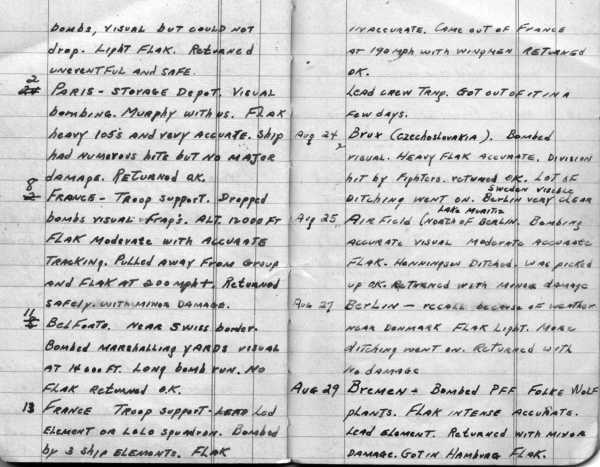 bombs, visual but could not
drop. Light Flak. Returned
uneventful and safe.
2 Paris - Storage Depot. Visual
bombing. Murphy with us. Flak
heavy 105's and very accurate. Ship
had numorous hits but no major
damage. Returned O.K.
8 France - Troop support. Dropped
bombs visual - Frag's. Alt. 12000 Ft
Flak Moderate with accurate
tracking. Pulled away from group
and Flak at 200 mph +. Returned
safely. with minor damage.
11 Belforto. Near Swiss border.
Bombed marshalling yards visual
at 14000 ft. Long bomb run. No
Flak returned O.K.
13 France Troop support - Lead Led
Element or LoLo squadron. Bombed
by 3 ship elements. Flak
inaccurate. Came out of France
at 190 mph with wingmen returned
OK.
Lead crew Trng. Got out of it in a
few days.
Aug 24 Brux (Czechoslovakia). Bombed
visual. Heavy Flak accurate. Division
hit by Fighters. returned OK. Lot of
Sweden visible
Ditching went on. Berlin very clear
Lake Muritz
Aug 25 Air Field (North of Berlin. Bombing
accurate visual Moderate accurate
Flak. Henningsen Ditched. Was picked
up OK. Returned with minor damage
Aug 27 Berlin - recall because of weather
near Denmark Flak Light. More
ditching went on. Returned with
no damage
Aug 29 Bremen - Bombed PFF Folke Wolf
plants. Flak intense accurate.
Lead element. Returned with minor
damage. Got in Hamburg Flak.